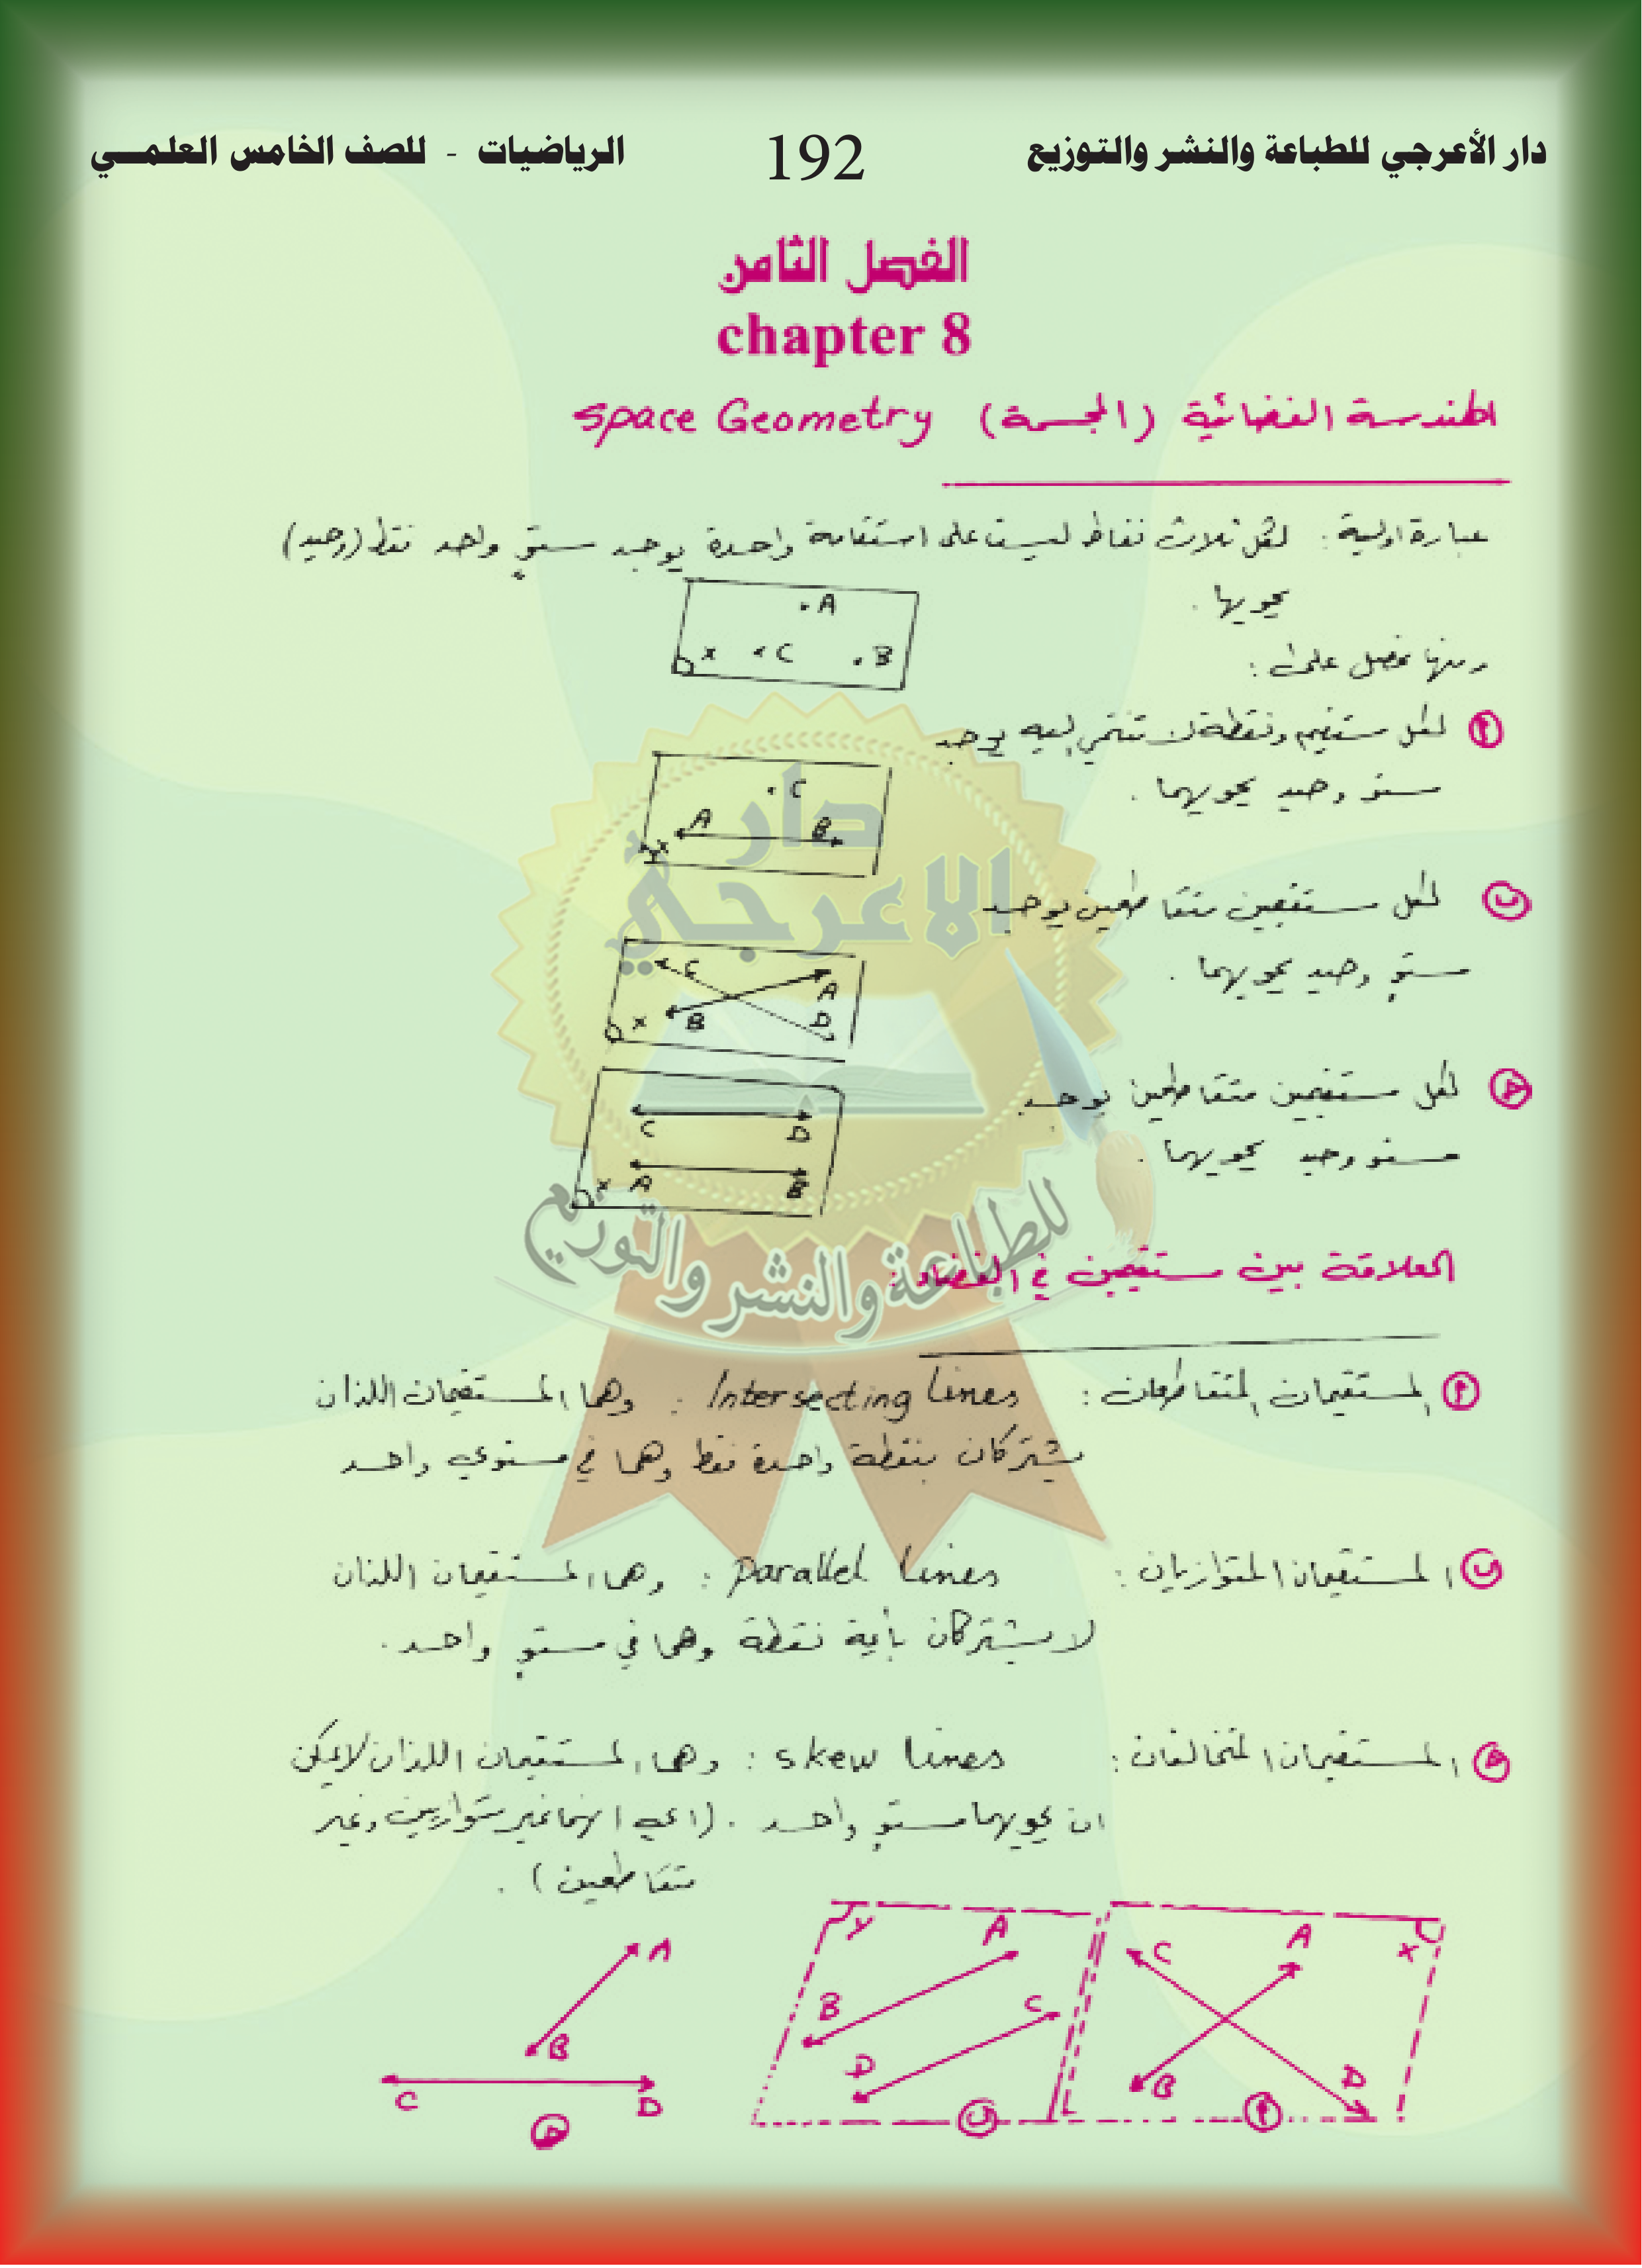 دار الأعرجي للطباعة والنشر والتوزيع 192 الرياضيات - للصف الخامس العلمي
الفصل الثامن
chapter 8
الهندسة الفضائية (المجسمة) space Geometry
عبارة اولية: لكل ثلاث نقاط ليست على استقامة واحدة يوجد مستوٍ واحد فقط (وحيد)
يحويها.
A
x C B
ومنها نحصل على:
أ لكل مستقيم ونقطة لا تنتمي إليه يوجد
مستو وحيد يحويهما.
C
A B
x
ب لكل مستقيمين متقاطعين يوجد
مستوٍ وحيد يحويهما.
C A
x B D
جـ لكل مستقيمين متقاطعين يوجد
مستو وحيد يحويهما.
C D
x A B
دار
الاعرجي
للطباعة والنشر والتوزيع
العلاقة بين مستقيمين في الفضاء:
أ المستقيمان المتقاطعان: Intersecting Lines: وهما المستقيمان اللذان
يشتركان بنقطة واحدة فقط وهما في مستوي واحد
ب المستقيمان المتوازيان: parallel Lines: وهما المستقيمان اللذان
لا يشتركان بأية نقطة وهما في مستوٍ واحد.
جـ المستقيمان المتخالفان: skew lines: وهما المستقيمان اللذان لا يمكن
ان يحويهما مستوٍ واحد. (اي انهما غير متوازيين وغير
متقاطعين).
A B C D جـ
y A B C D ب
x A C B D أ